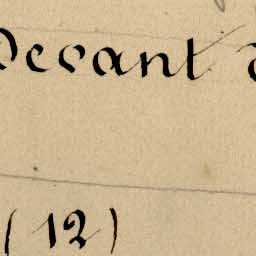 Devant
(12)